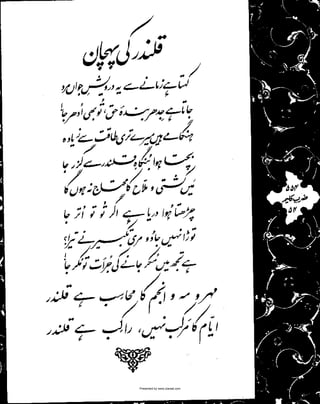 قلندر کی پہچان
کہتا ہے زمانے سے یہ درویشِ جواں مرد
جاتا ہے جدھر بندۂ حق، تو بھی اُدھر جا!
ہنگامے ہیں میرے تری طاقت سے زیادہ
بچتا ہوا بُنگاہِ قلندر سے گزر جا
میں کشتی و ملّاح کا محتاج نہ ہوں گا
چڑھتا ہوا دریا ہے اگر تُو تو اُتر جا
توڑا نہیں جادو مری تکبیر نے تیرا؟
ہے تجھ میں مُکر جانے کی جرأت تو مُکر جا!
مہر و مہ و انجم کا محاسب ہے قلندر
ایّام کا مَرکب نہیں، راکب ہے قلندر
۵۵۴
ضربِ کلیم
۵۴
Presented by www.ziaraat.com